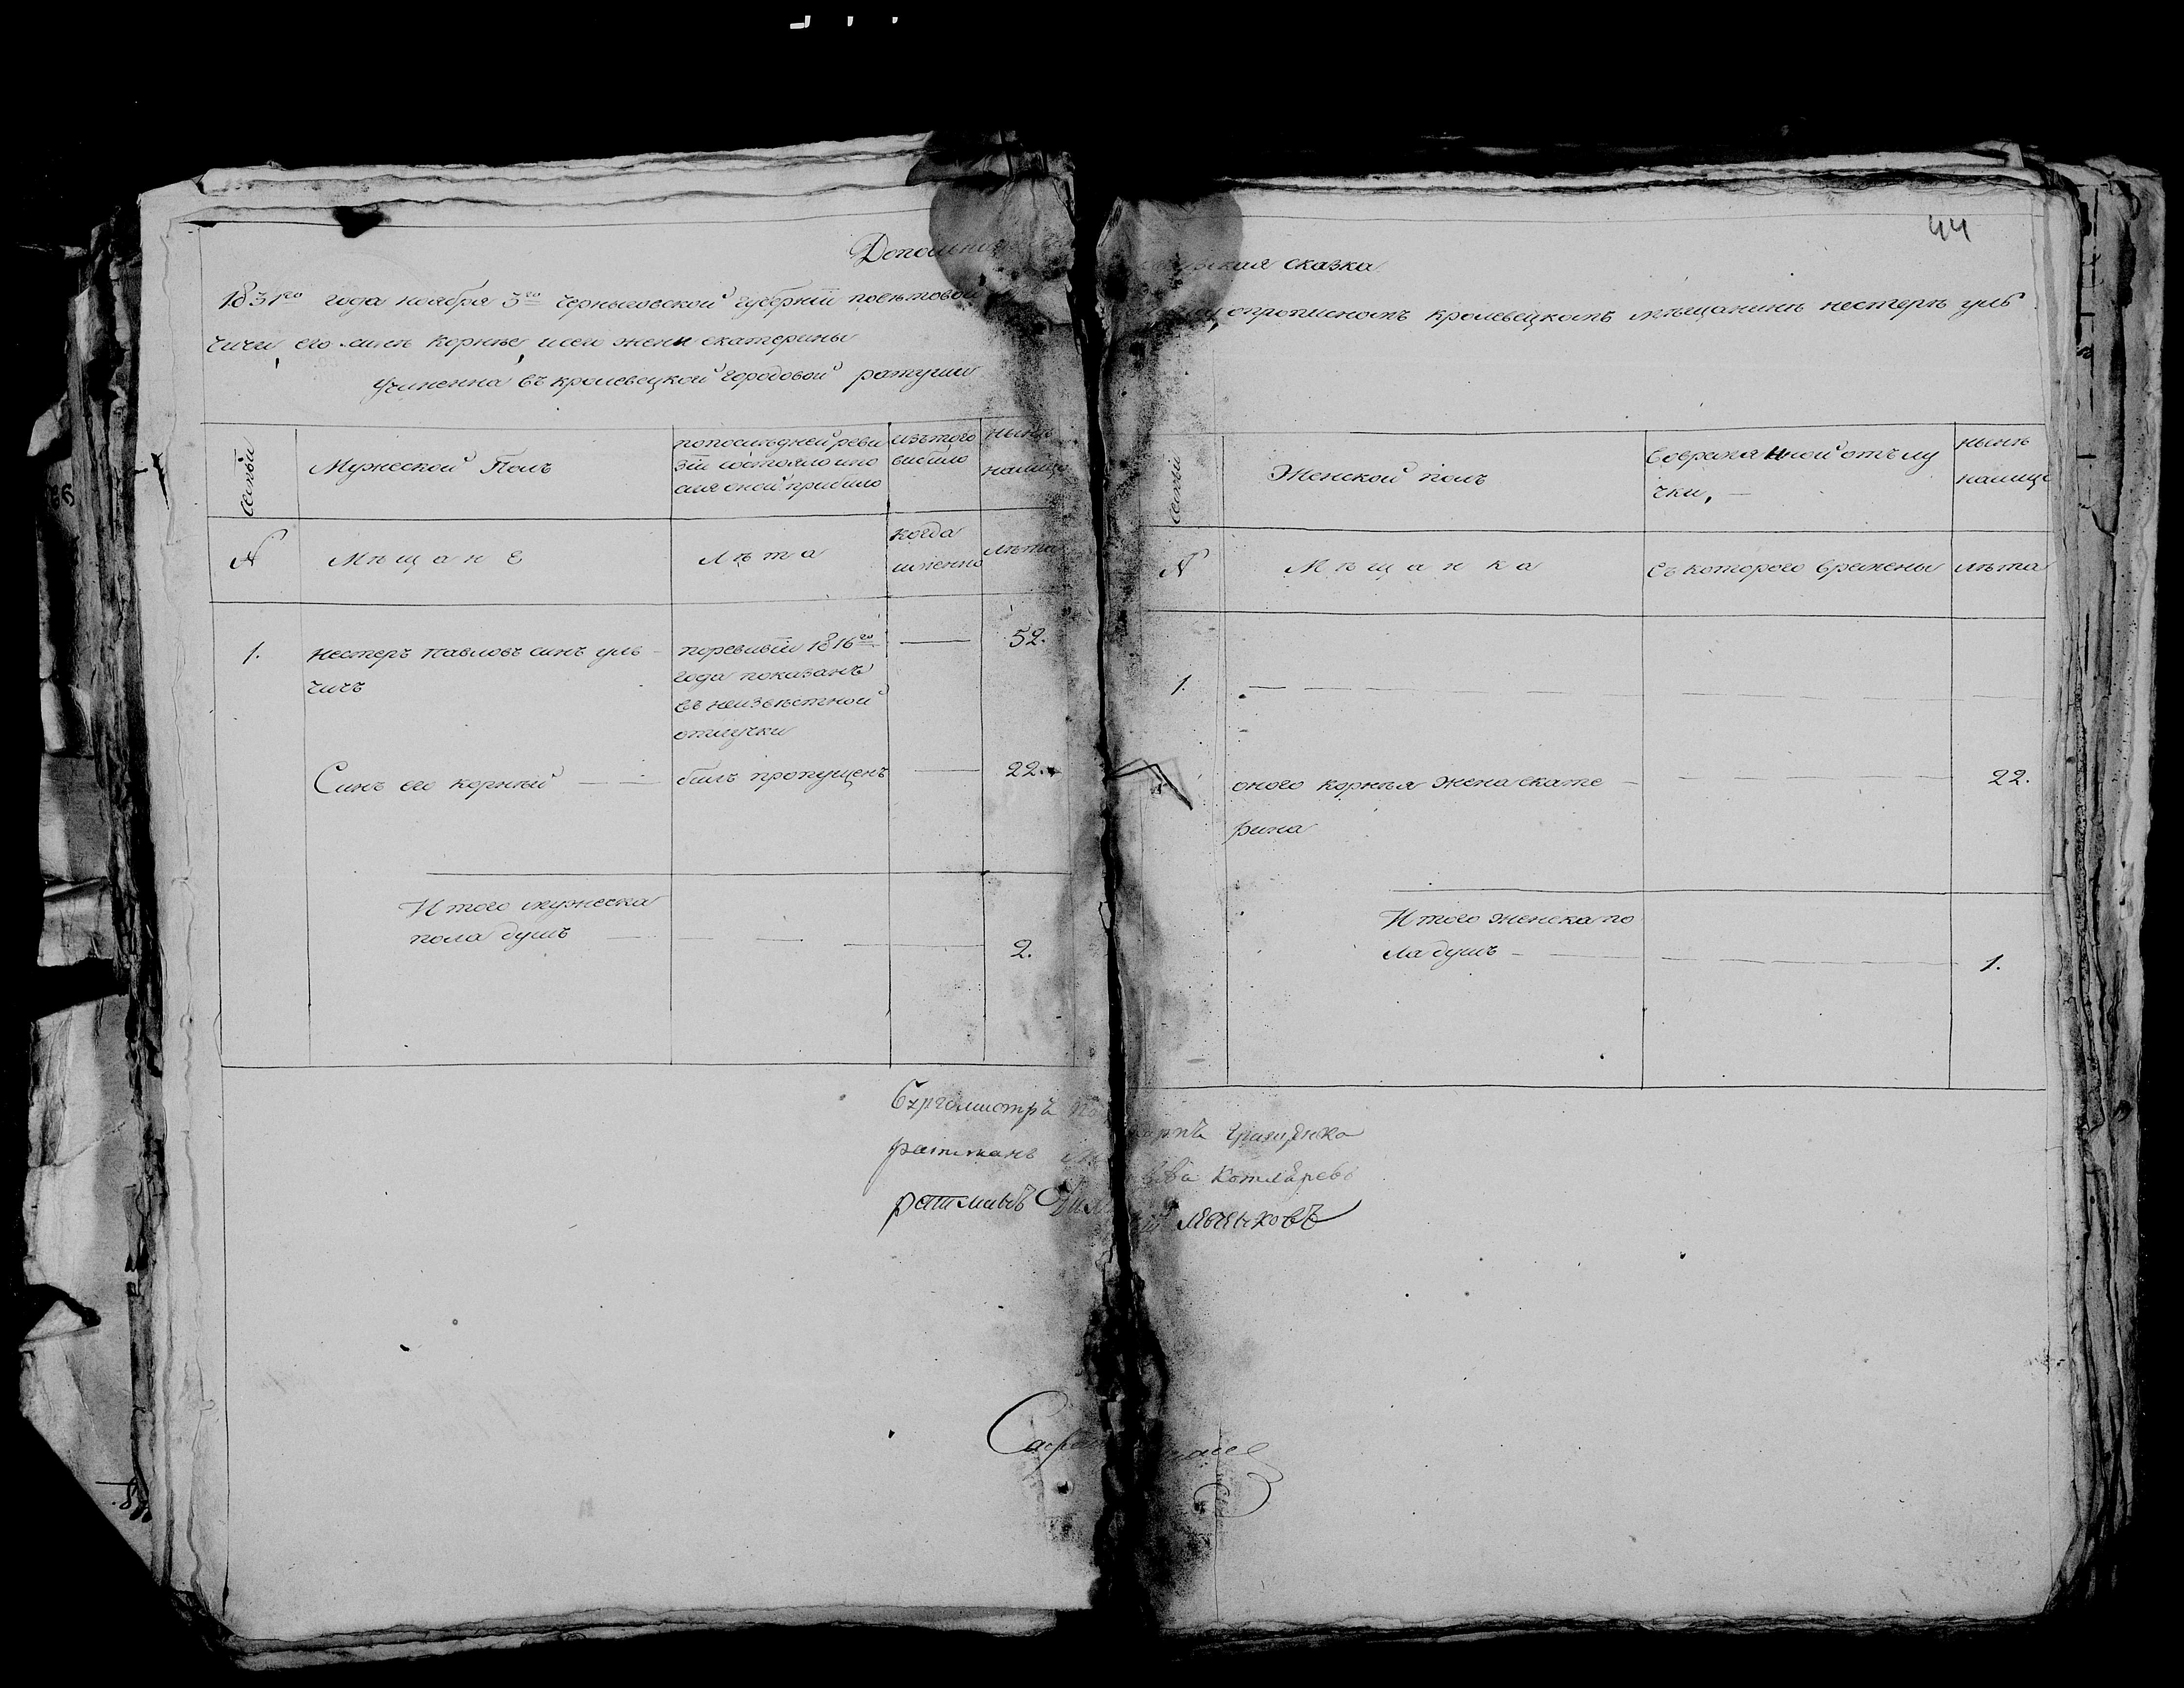 44
ская сказка
1831го года ноября 3го черныговской губернии поветовой
опрописномъ кролевецкомъ мещанинъ нестеръ уль
чичи, его сине Корние, и его жени екатерины
учиненна въ кролевецкой городовой ратуши
Семьи
Мужеской Полъ
попоследней реви
зіи состояло ипо
сля оной прибило
изътого
вибило
ныне
налицо
№
Мѣщане
Лѣта
когда
именно
лѣта
1.
нестеръ павловъ синъ уль
чичъ
поревизіи 1816го
года показанъ
въ неизвѣстной
отлучки
52.
Синъ его корнѣй
билъ пропущенъ
22.
Итого мужеска
пола душъ
2.
Семьи
Женской полъ
Вовременной отълу
чки,
нынѣ
налице
№
Мѣщанка
Съкоторого времены
лѣта
1.
оного корнѣя жена екате
рина
22.
Итого женска по
ла душъ
1.
Бургомистръ
ратманъ
ратманъ